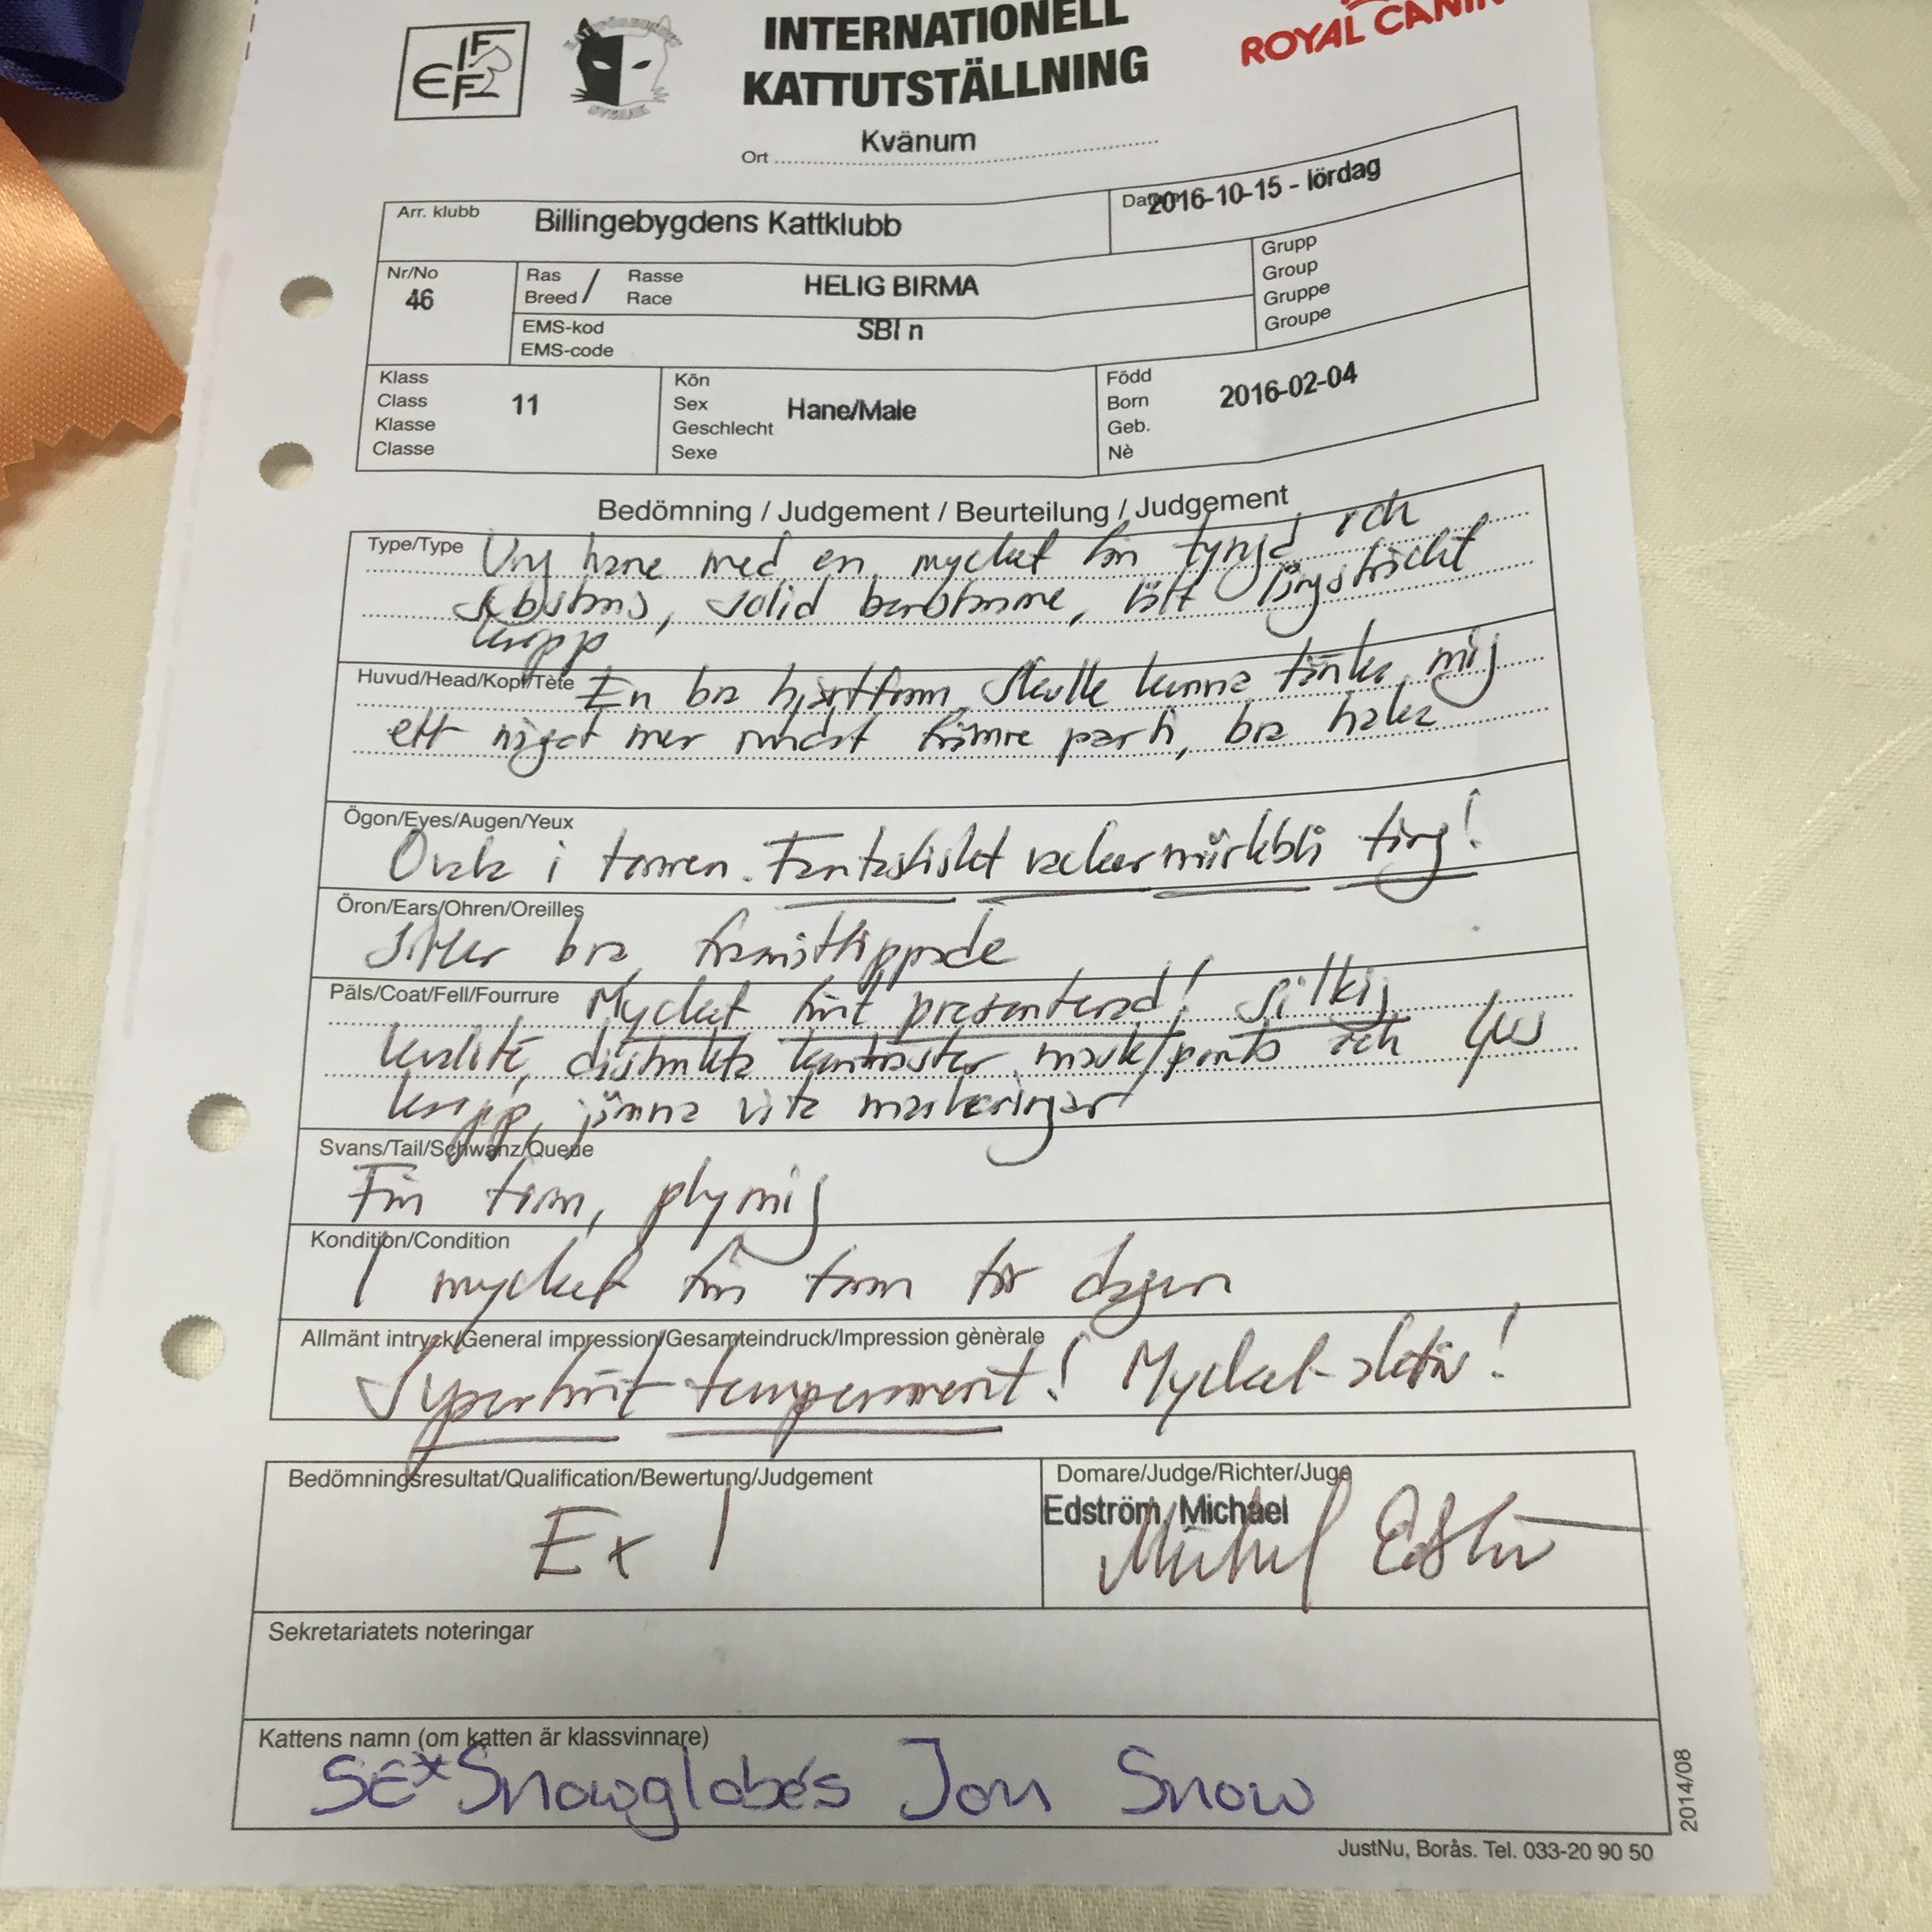 FIFe
INTERNATIONELL
KATTUTSTÄLLNING
ROYAL CANIN
Ort Kvänum
Arr. klubb Billingebygdens Kattklubb
2016-10-15 - lördag
Nr/No
46
Ras / Rasse
Breed Race
HELIG BIRMA
EMS-kod
EMS-code
SBI n
Grupp
Group
Gruppe
Groupe
Klass
Class
Klasse
Classe
11
Kön
Sex
Geschlecht
Sexe
Hane/Male
Född
Born
Geb.
Nè
2016-02-04
Bedömning / Judgement / Beurteilung / Judgement
Type/Type Ung hane med en mycket fin tyngd och
substans, solid benstomme, lätt långsträckt
kropp
Huvud/Head/Kopf/Tète En bra hjärtform, skulle kunna tänka mig
ett något mer rundat främre parti, bra haka
Ögon/Eyes/Augen/Yeux
Ovala i formen. Fantastiskt vacker mörkblå färg!
Öron/Ears/Ohren/Oreilles
Sitter bra framåttippade
Päls/Coat/Fell/Fourrure Mycket fint presenterad! Silkig
kvalité, distinkta kontraster mask/points och ljus
kropp, jämna vita markeringar
Svans/Tail/Schwanz/Queue
Fin form, plymig
Kondition/Condition
I mycket fin form för dagen
Allmänt intryck/General impression/Gesamteindruck/Impression gènèrale
Syperfint temperament! Mycket aktiv!
Bedömningsresultat/Qualification/Bewertung/Judgement
Ex 1
Domare/Judge/Richter/Juge
Edström, Michael
Michael Edström
Sekretariatets noteringar
Kattens namn (om katten är klassvinnare)
SE*Snowglobés Jon Snow
2014/08
JustNu, Borås. Tel. 033-20 90 50